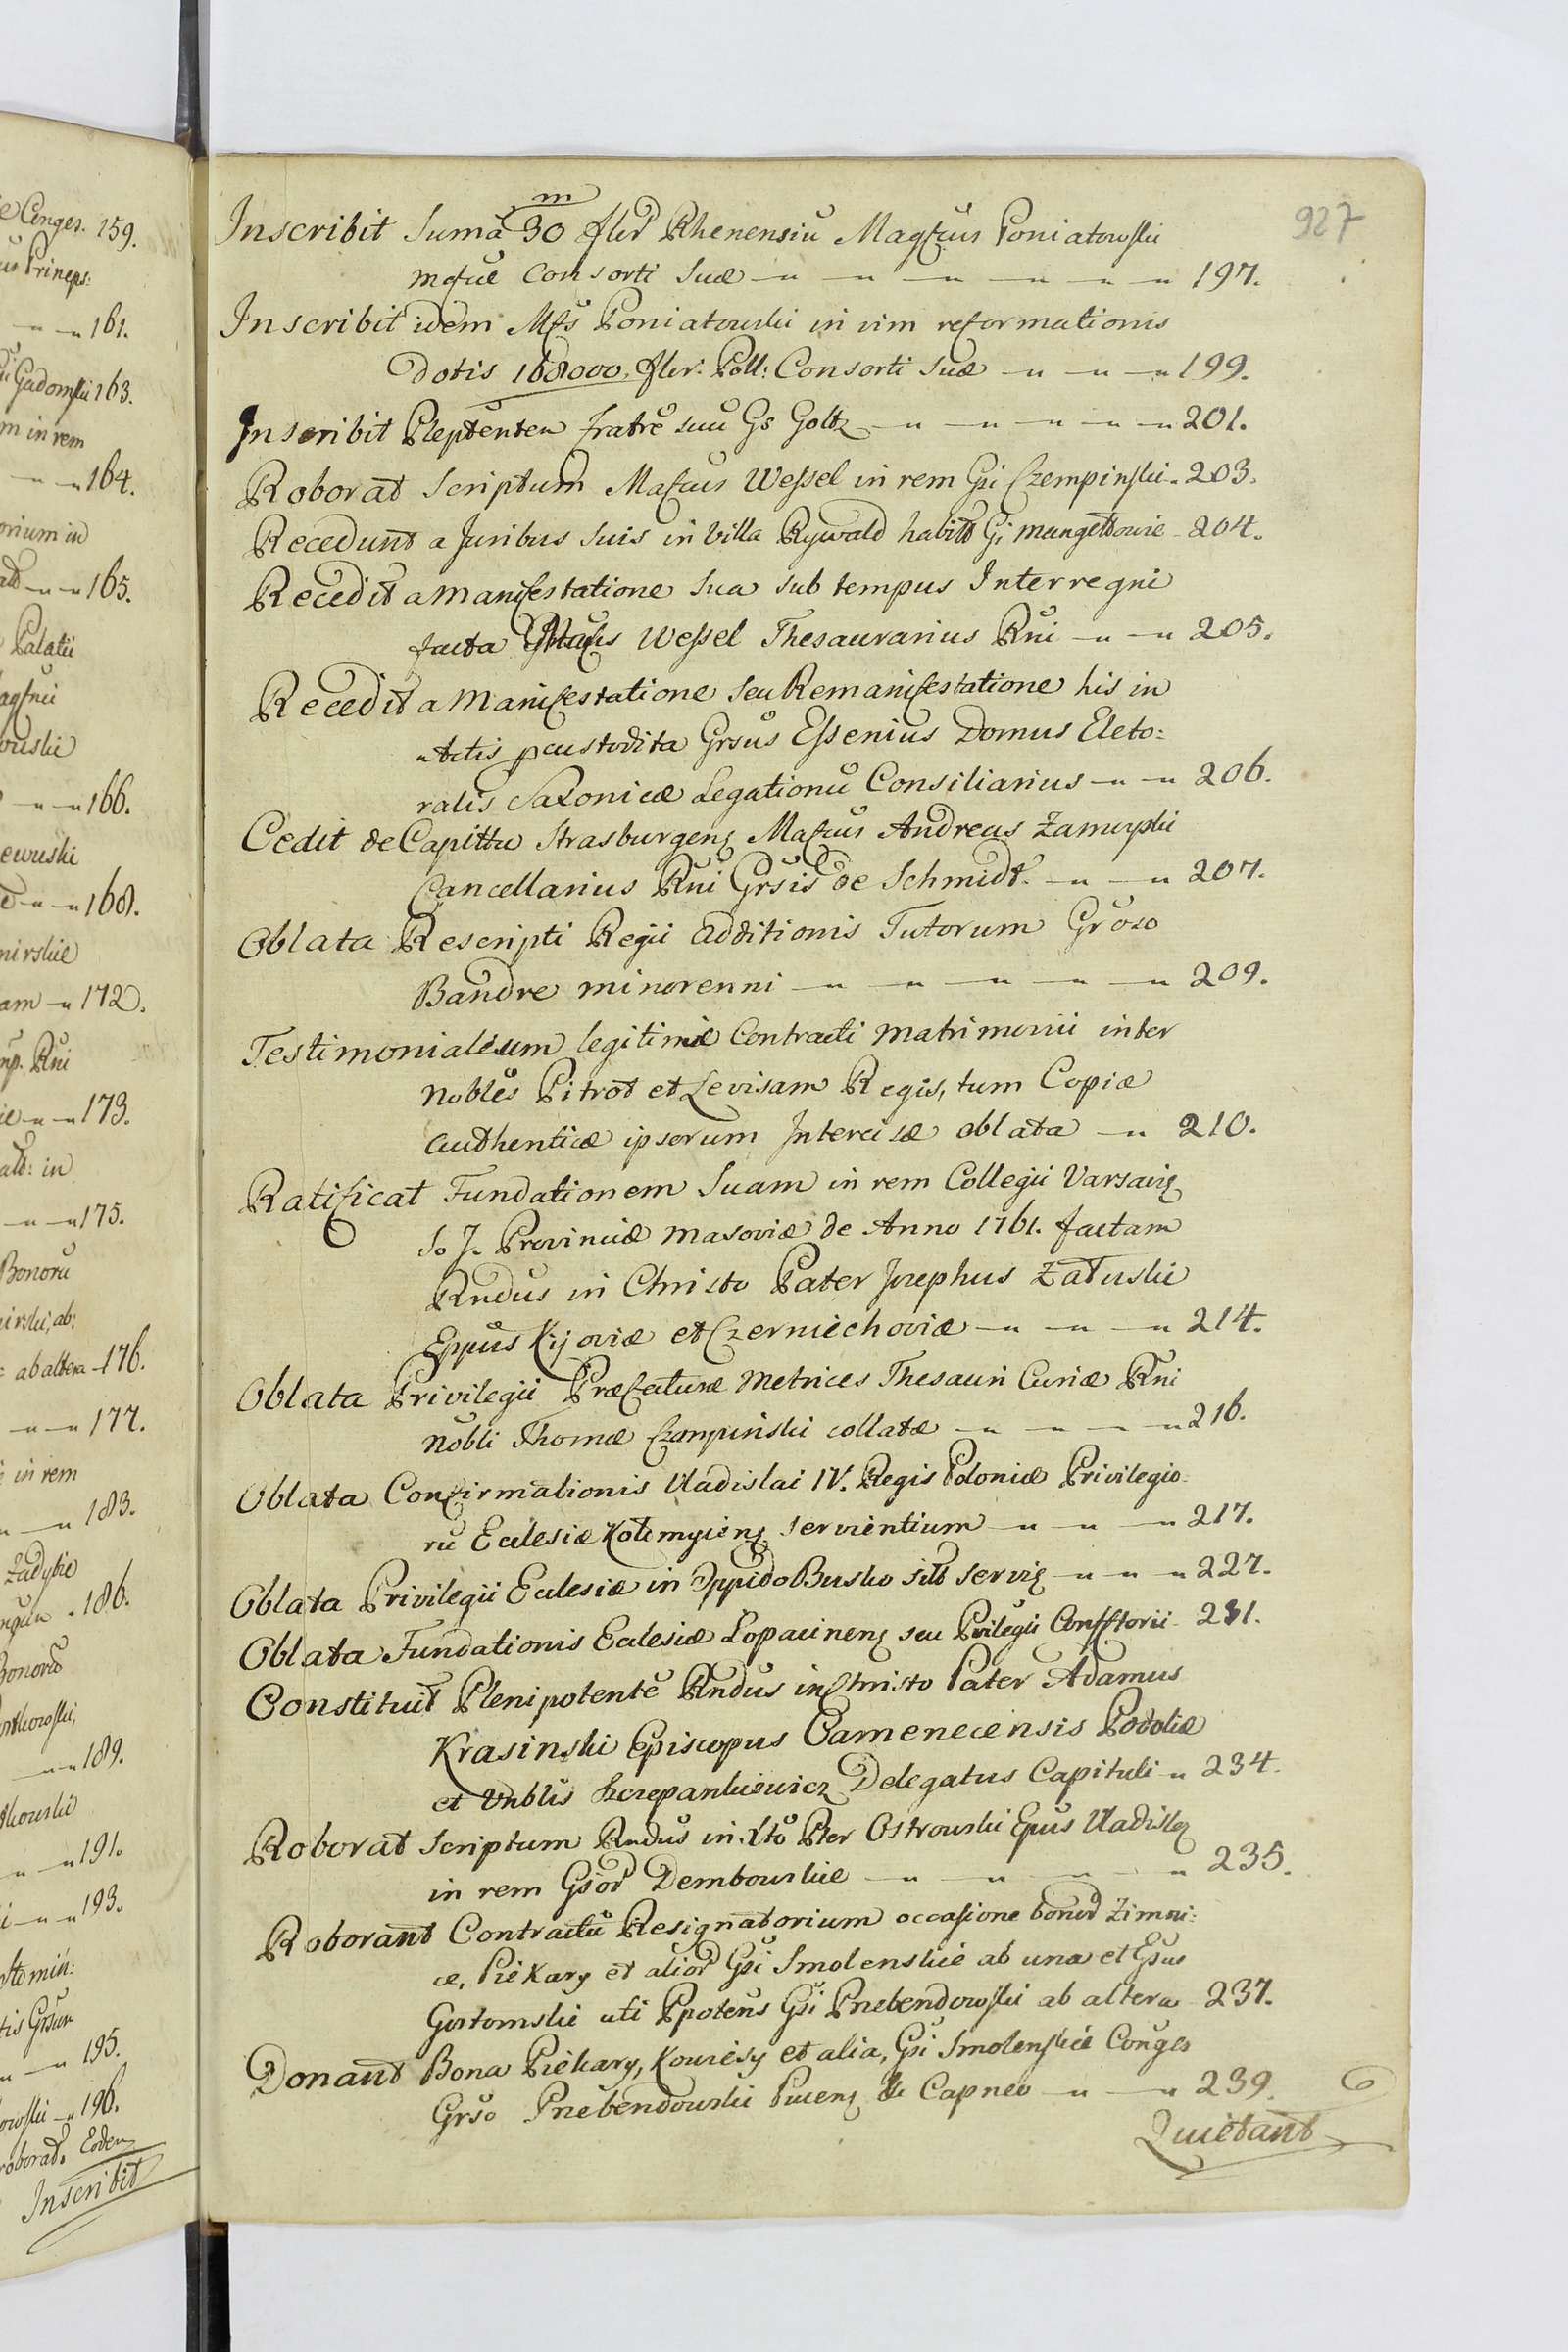 e Conges. 159.
us Princps:
-n -n 161.
Gadomski 163.
m in rem
-n -n 164.
orium in
-n -n 165.
Palatii
agfnii
owskie
-n -n 166.
ewuski
-n -n 168.
mirskie
am -n 172.
mp. Rni
-n -n 173.
in
-n -n 175.
Bonorũ
irski, ab:
= ab altera -176.
-n -n 177.
in rem
-n -n 183.
Zadybie
186.
Bonorũ
-n -n 189.
kowskie
-n -n 191.
i -n -n 193.
tis Grsum
-n -n 195.
owski -n 196.
roborat. Eodem
Inscribit
927
m
Inscribit Sumã 30 flor Rhenensiũ Magfcus Poniatowski
mfcæ Consorti Suæ -n -n -n -n -n -n 197.
Inscribit idem Mfcs Poniatowski in vim reformationis
dotis 168000. flor: Poll: Consorti suæ -n -n -n 199.
Inscribit Pleptenten fratrẽ suũ Gs Goltz -n -n -n -n -n 201.
Roborat Scriptum Mafcus Wessel in rem Gsi Czempinski - 203.
Recedunt a Juribus suis in Villa Rywald habitt Gi mangettowie - 204.
Recedit a Manifestatione sua sub tempus Interregni
facta Wessel Thesaurarius Rni -n -n 205.
Recedit a Manifestatione seu Remanifestatione his in
Actis pcustodita Grsus Essenius Domus Eleto:
ralis Saxonicæ Legationũ Consiliarius -n -n 206.
Cedit de Capitta Strasburgens Mafcus Andreas Zamoyski
Cancellarius Rni Grsis de Schmidt. -n -n 207.
Oblata Rescripti Regii additionis Tutorum Groso
Bandre minorenni -n -n -n -n -n 209.
Testimonialium legitimè Contracti matrimonii inter
Nobles Pitrot et Levisam Regis, tum Copiæ
authenticæ ipsorum Intercisæ oblata -n 210.
Ratificat Fundationem Suam in rem Collegii Varsavis
So J. Provinciæ Masoviæ de Anno 1761. factam
Rndus in Christo Pater Josephus Załuski
Eppus Kijoviæ et Czerniechoviæ -n -n -n 214.
Oblata Privilegii Præfecturæ Metrices Thesauri Curiæ Rni
Nobli Thomæ Czempinski collatæ -n -n -n -n 216.
Oblata Confirmationis Uladislai IV. Regis Poloniæ Privilegio:
rũ Ecclesiæ Kołomyiens servientium -n -n -n 217.
Oblata Privilegii Ecclesiæ in Oppido Busko sitt servis -n -n -n 227.
Oblata Fundationis Ecclesiæ Łopacinens seu Privilegii Consistorii - 231.
Constituit Plenipotentẽ Rndus in Christo Pater Adamus
Krasinski Episcopus Camenecensis Podoliæ
et Vnblis Szczepankiewicz Delegatus Capituli -n 234.
Roborat Scriptum Rndus in Xto Pter Ostrowski Epus Uladisles
in rem Gsor Dembowskie -n -n -n -n 235.
Roborant Contractũ Resignatorium occasione bonor Zimni:
ce, Piekary et alior Gsi Smolenskie ab una et Gsus
Gostomski uti Ppotens Gsi Prebendowski ab altera - 237.
Donant Bona Piekary, Kowiesy et alia, Gsi Smolenskie Conges
Grso Prebendowski Pucens & Capneo -n -n 239.
Quietant